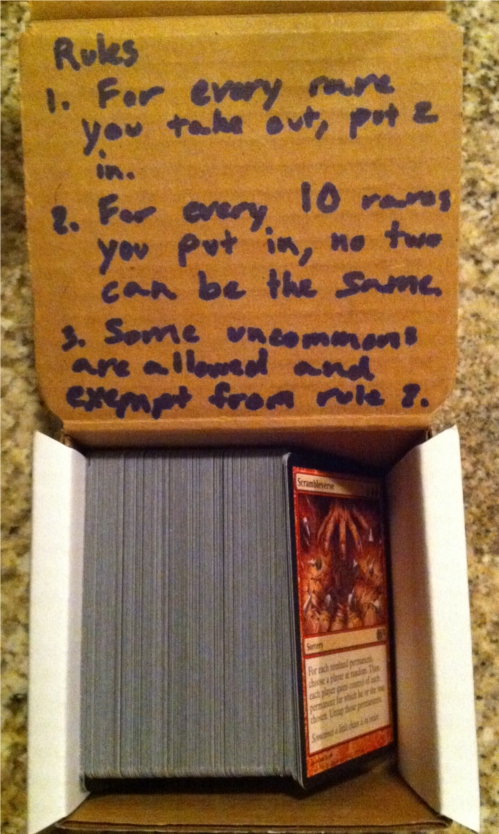 Rules
1. For every rare
you take out, put 2
in.
2. For every 10 rares
you put in, no two
can be the same.
3. Some uncommons
are allowed and
exempt from rule 2.
Scrambleverse
Sorcery
For each nonland permanent,
choose a player at random. Then
each player gains control of each
permanent for which he or she was
chosen. Untap those permanents.
Sometimes a little chaos is in order.